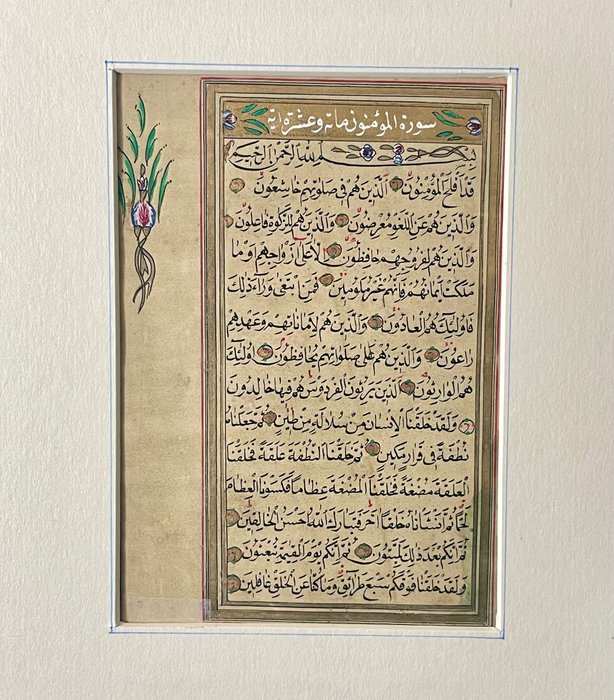 سورة المؤمنون مائة وعشرة اية
بسم الله الرحمن الرحيم
قَدْ اَفْلَحَ الْمُؤْمِنُونَ اَلَّذينَ هُمْ فى صَلوتِهِمْ خَاشِعُونَ
وَالَّذينَ هُمْ عَنِ اللَّغْوِ مُعْرِضُونَ وَالَّذينَ هُمْ لِلزَّكوةِ فَاعِلُونَ
وَالَّذينَ هُمْ لِفُرُوجِهِمْ حَافِظُونَ اِلَّا عَلى اَزْوَاجِهِمْ اَوْ مَا
مَلَكَتْ اَيْمَانُهُمْ فَاِنَّهُمْ غَيْرُ مَلُومينَ فَمَنِ ابْتَغى وَرَاءَ ذلِكَ
فَاُولئِكَ هُمُ الْعَادُونَ وَالَّذينَ هُمْ لِاَمَانَاتِهِمْ وَعَهْدِهِمْ
رَاعُونَ وَالَّذينَ هُمْ عَلى صَلَوَاتِهِمْ يُحَافِظُونَ اُولئِكَ
هُمُ الْوَارِثُونَ اَلَّذينَ يَرِثُونَ الْفِرْدَوْسَ هُمْ فيهَا خَالِدُونَ
وَلَقَدْ خَلَقْنَا الْاِنْسَانَ مِنْ سُلَالَةٍ مِنْ طينٍ ثُمَّ جَعَلْنَاهُ
نُطْفَةً فى قَرَارٍ مَكينٍ ثُمَّ خَلَقْنَا النُّطْفَةَ عَلَقَةً فَخَلَقْنَا
الْعَلَقَةَ مُضْغَةً فَخَلَقْنَا الْمُضْغَةَ عِظَاماً فَكَسَوْنَا الْعِظَامَ
لَحْماً ثُمَّ اَنْشَاْنَاهُ خَلْقاً اخَرَ فَتَبَارَكَ اللهُ اَحْسَنُ الْخَالِقينَ
ثُمَّ اِنَّكُمْ بَعْدَ ذلِكَ لَمَيِّتُونَ ثُمَّ اِنَّكُمْ يَوْمَ الْقِيمَةِ تُبْعَثُونَ
وَلَقَدْ خَلَقْنَا فَوْقَكُمْ سَبْعَ طَرَائِقَ وَمَا كُنَّا عَنِ الْخَلْقِ غَافِلينَ